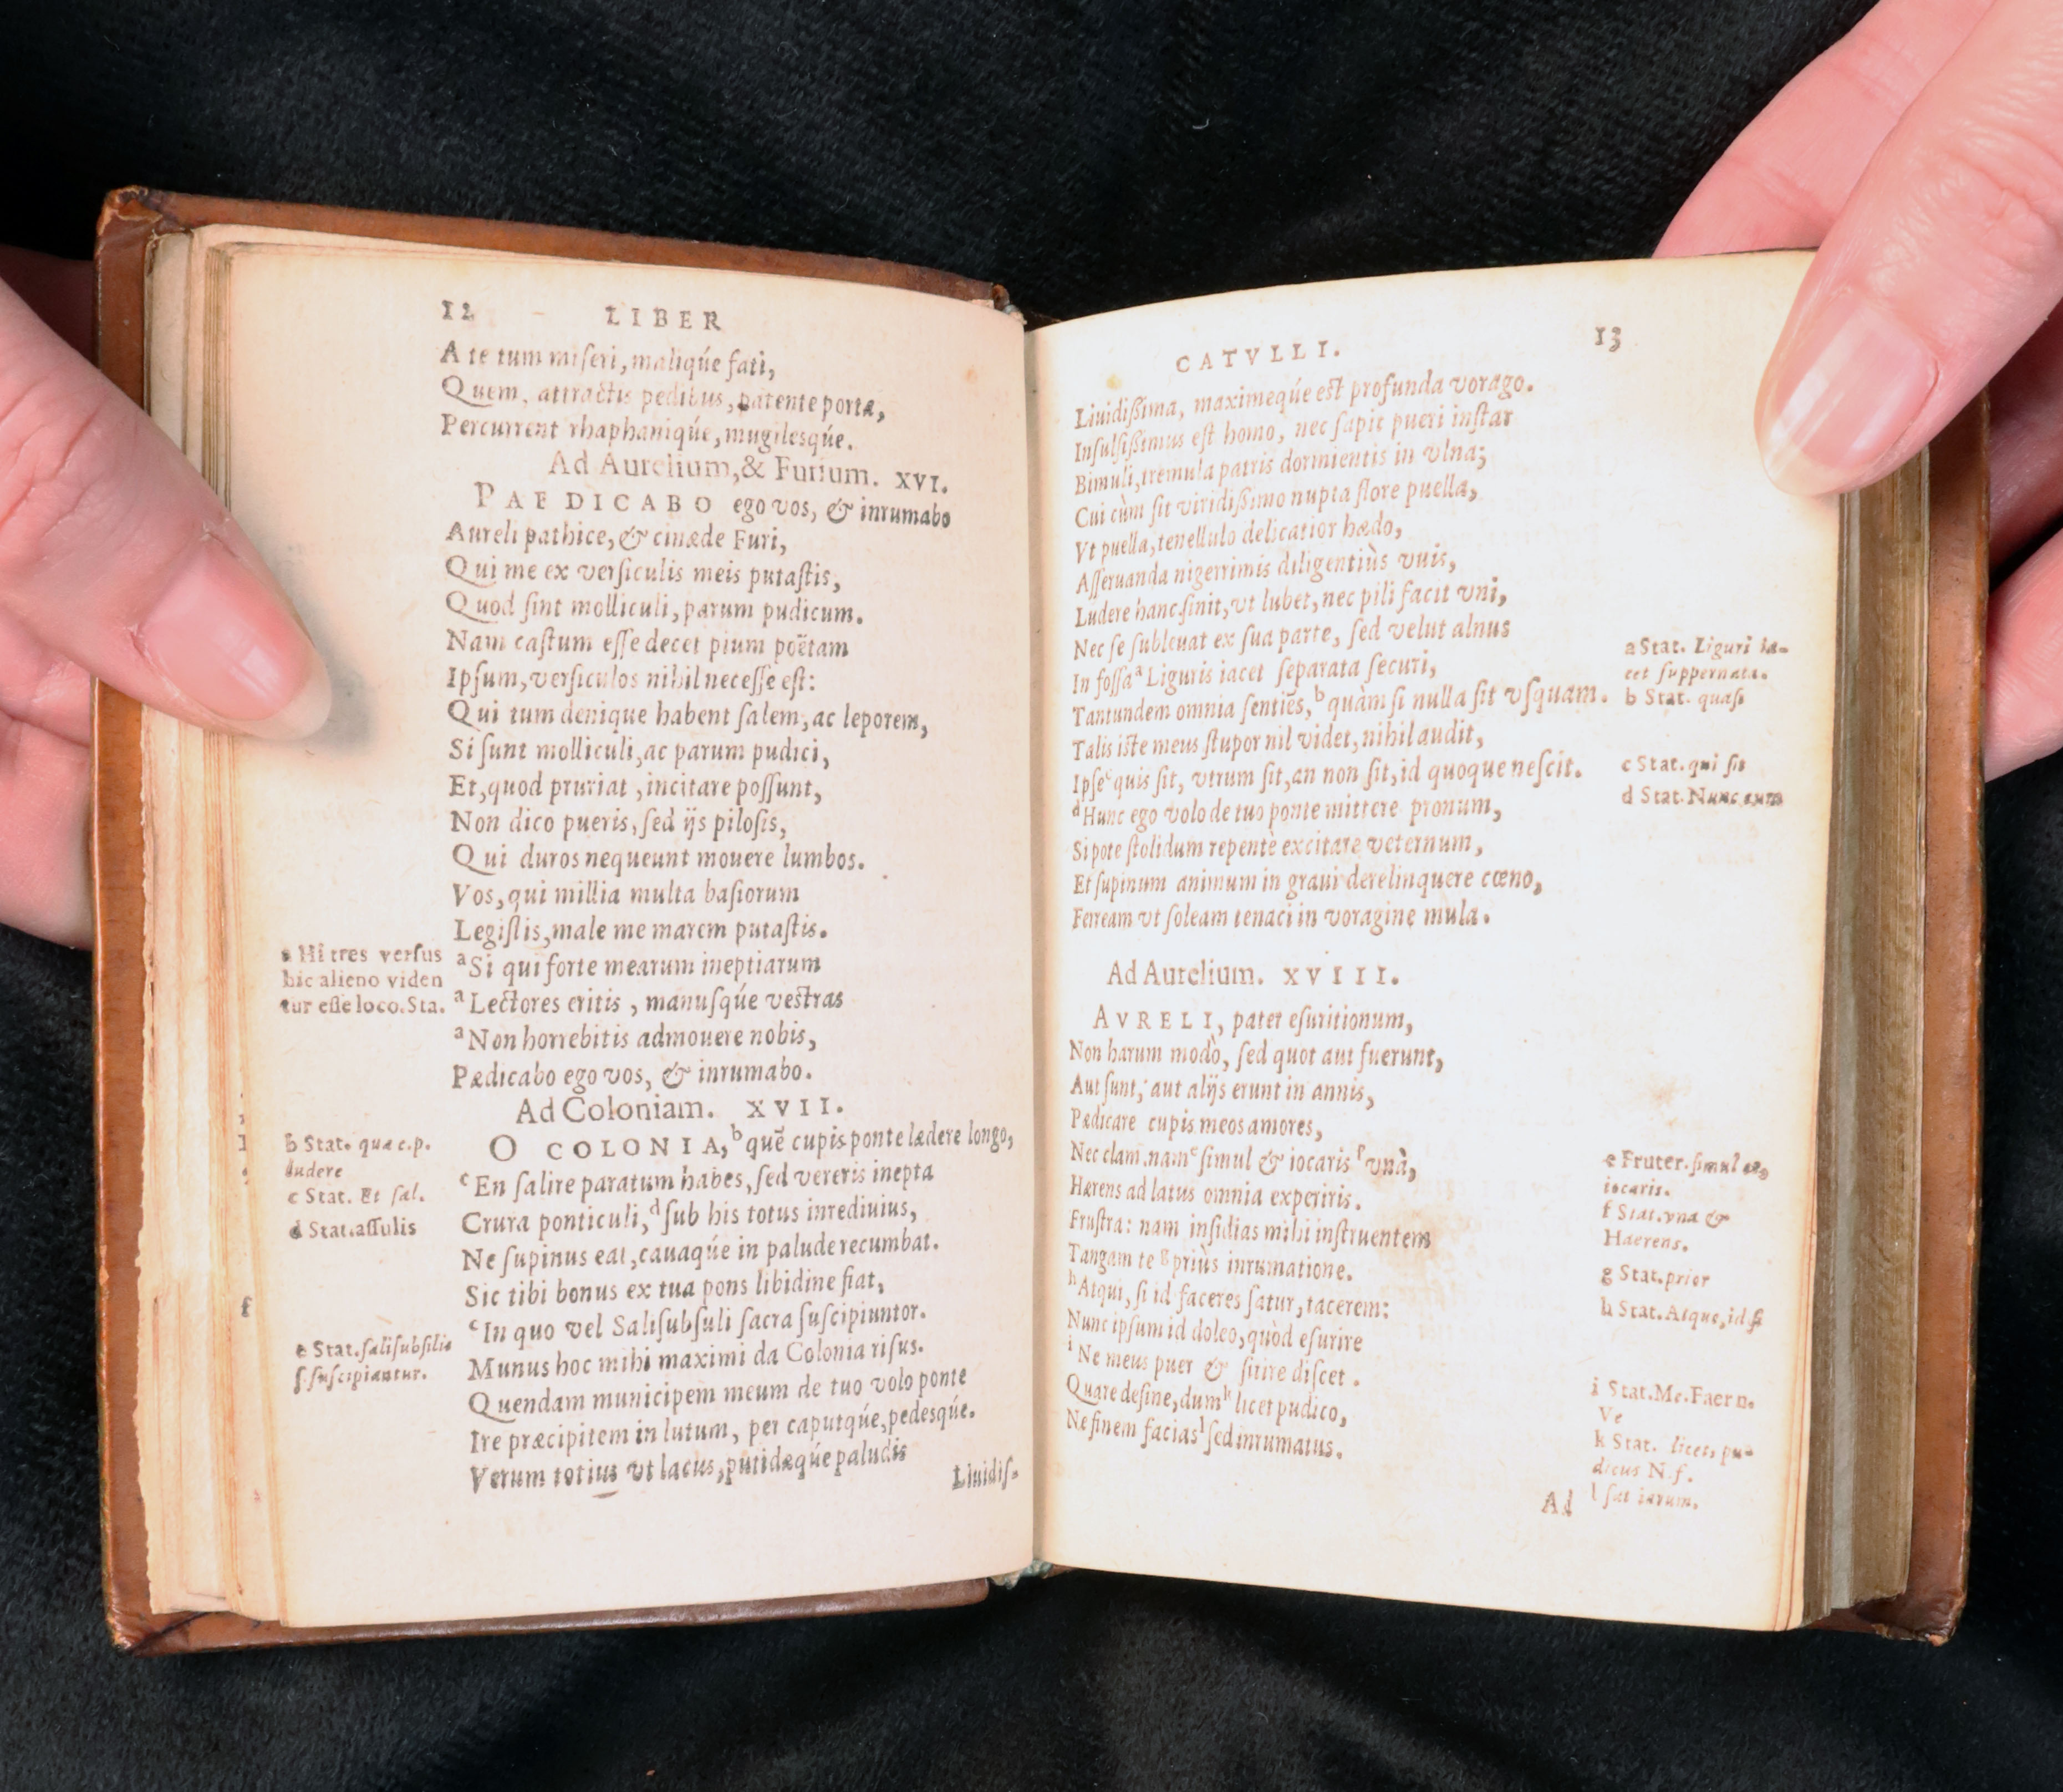 12 LIBER
A te tum miſeri, maliqúe fati,
Quem, attractis pedibus, patente porta,
Percurrent rhaphaniqúe, mugilesqúe.
Ad Aurelium, & Furium. XVI.
PAEDICABO ego vos, & inrumabo
Aureli pathice, & cinæde Furi,
Qui me ex verſiculis meis putaſtis,
Quod ſint molliculi, parum pudicum.
Nam caſtum eſſe decet pium poëtam
Ipſum, verſiculos nihil neceſſe eſt:
Qui tum denique habent ſalem, ac leporem,
Si ſunt molliculi, ac parum pudici,
Et, quod pruriat, incitare poſſunt,
Non dico pueris, ſed ijs piloſis,
Qui duros nequeunt mouere lumbos.
Vos, qui millia multa baſiorum
Legiſtis, male me marem putaſtis.
a Si qui forte mearum ineptiarum
a Lectores eritis, manuſqúe vestras
a Non horrebitis admouere nobis,
Pædicabo ego vos, & inrumabo.
Ad Coloniam. XVII.
O COLONIA, b quē cupis ponte lædere longo,
c En ſalire paratum habes, ſed vereris inepta
Crura ponticuli, d ſub his totus inrediuius,
Ne ſupinus eat, cauaqúe in palude recumbat.
Sic tibi bonus ex tua pons libidine fiat,
e In quo vel Saliſubſuli ſacra ſuſcipiuntor.
Munus hoc mihi maximi da Colonia riſus.
Quendam municipem meum de tuo volo ponte
Ire præcipitem in lutum, per caputqúe, pedesqúe.
Verum totius vt lacus, putidæqúe paludis
Liuidiſ-
a Hi tres verſus
hic alieno viden
tur eſſe loco. Sta.
b Stat. quæ c. p.
ludere
c Stat. Et ſal.
d Stat. aſſulis
e Stat. ſaliſubſilis
ſ. ſuſcipiantur.
CATVLLI. 13
Liuidiſſima, maximeqúe est profunda vorago.
Inſulſiſſimus eſt homo, nec ſapit pueri inſtar
Bimuli, tremula patris dormientis in vlna;
Cui cùm ſit viridiſſimo nupta flore puella,
Vt puella, tenellulo delicatior hædo,
Aſſeruanda nigerrimis diligentiùs vuis,
Ludere hanc ſinit, vt lubet, nec pili facit vni,
Nec ſe ſubleuat ex ſua parte, ſed velut alnus
In foſſa a Liguris iacet ſeparata ſecuri,
Tantundem omnia ſentiēs, b quàm ſi nulla ſit vſquam.
Talis iſte meus ſtupor nil videt, nihil audit,
Ipſe c quis ſit, vtrum ſit, an non ſit, id quoque neſcit.
d Hunc ego volo de tuo ponte mittere pronum,
Si pote ſtolidum repentè excitare veternum,
Et ſupinum animum in graui derelinquere cœno,
Ferream vt ſoleam tenaci in voragine mula.
Ad Aurelium. XVIII.
AVRELI, pater eſuritionum,
Non harum modò, ſed quot aut fuerunt,
Aut ſunt, aut alijs erunt in annis,
Pædicare cupis meos amores,
Nec clam. nam e ſimul & iocaris f vnà,
Hærens ad latus omnia experiris.
Fruſtra: nam inſidias mihi inſtruentem
Tangam te g priùs inrumatione.
h Atqui, ſi id faceres ſatur, tacerem:
Nunc ipſum id doleo, quòd eſurire
i Ne meus puer & ſitire diſcet.
Quare deſine, dum k licet pudico,
Ne finem facias l ſed inrumatus.
Ad
a Stat. Liguri ia-
cet ſuppernata.
b Stat. quaſi
c Stat. qui ſit
d Stat. Nunc eum
e Fruter. ſimul es,
iocaris.
f Stat. vna &
Haerens.
g Stat. prior
h Stat. Atque, id ſi
i Stat. Me. Faern.
Ve
k Stat. licet, pu-
dicus N. f.